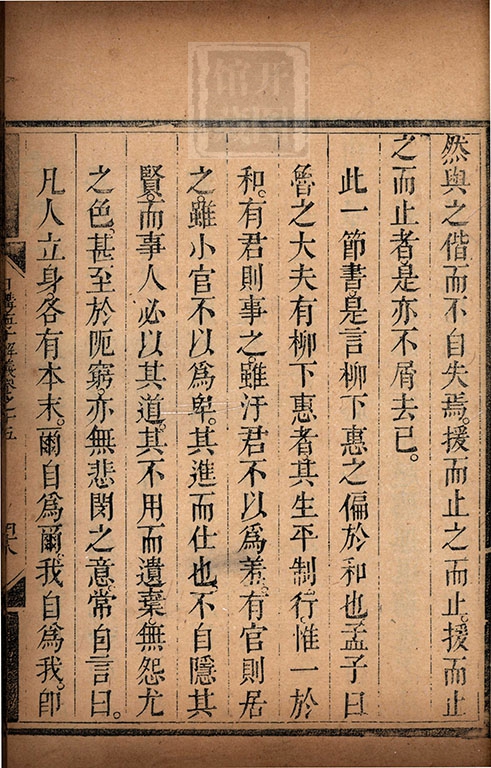 然與之偕而不自失焉。援而止之而止。援而止
之而止者。是亦不屑去已。
此一節書。是言柳下惠之偏於和也。孟子曰
魯之大夫有柳下惠者。其生平制行。惟一於
和。有君則事之。雖汙君不以爲羞。有官則居
之。雖小官不以爲卑。其進而仕也。不自隱其
賢。而事人必以其道。其不用而遺棄。無怨尤
之色。甚至於阨窮。亦無悲閔之意。常自言曰。
凡人立身。各有本末。爾自爲爾。我自爲我。卽